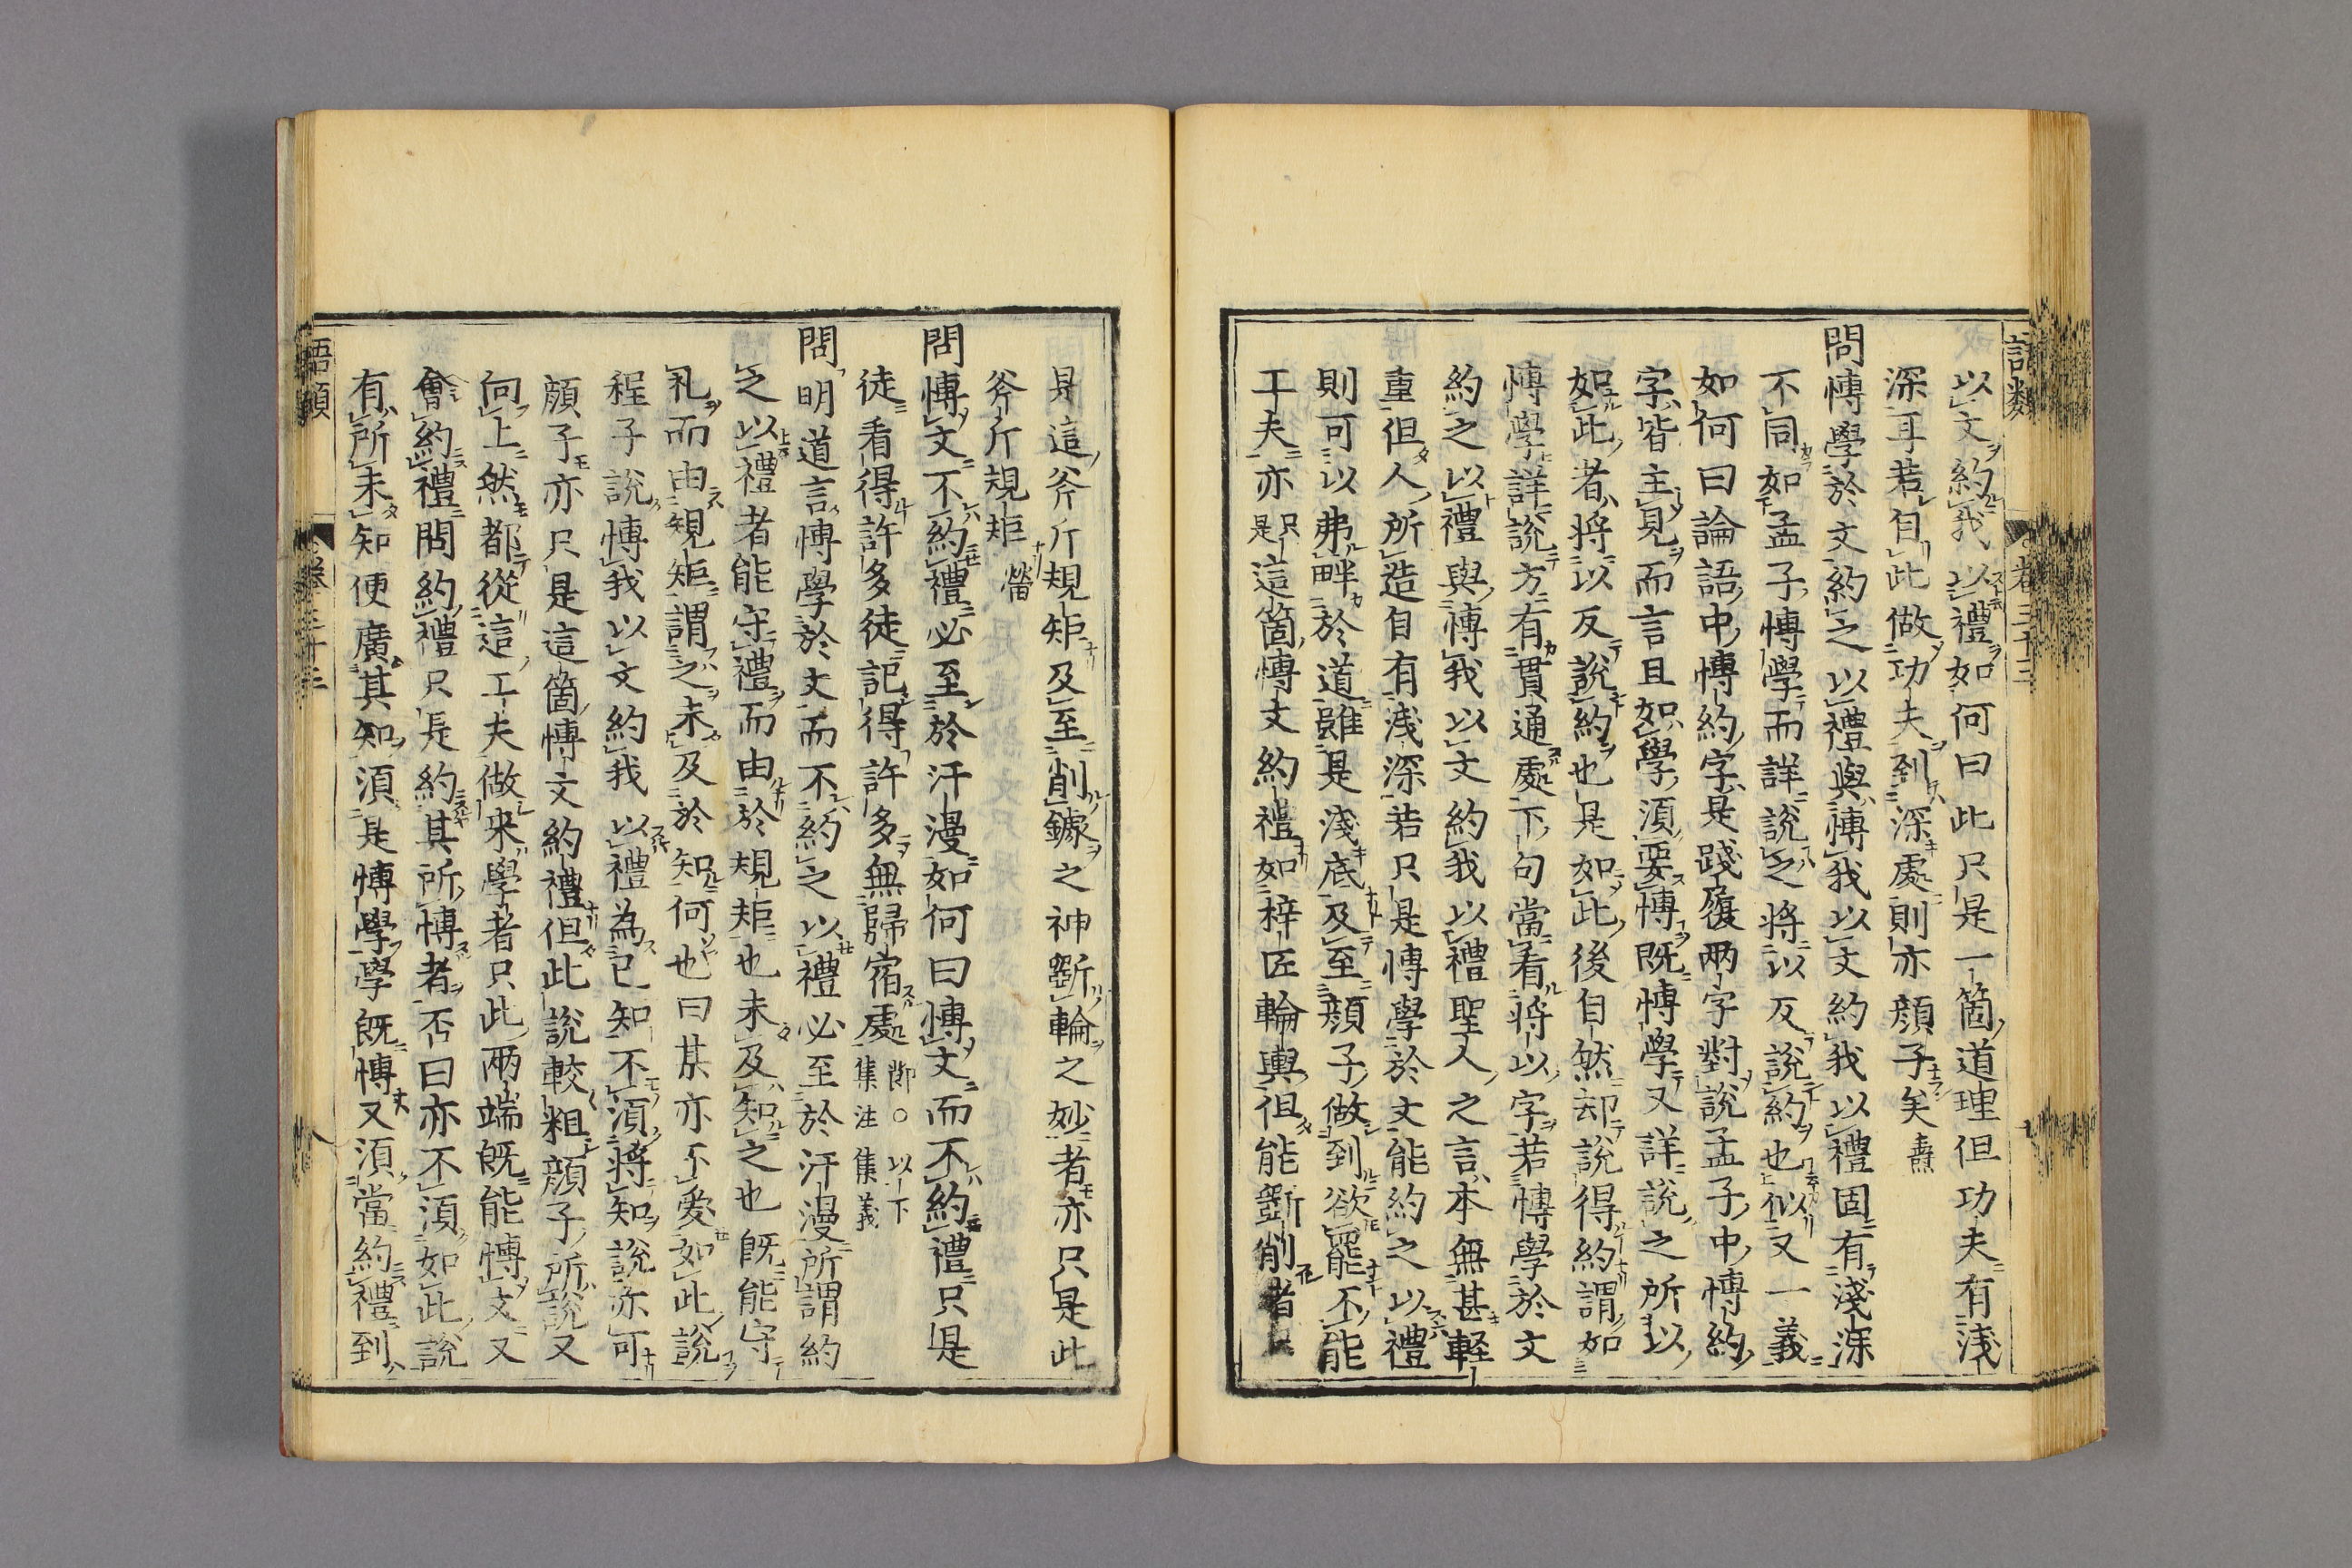 語類 卷三十三
以文約我以禮如何曰此只是一箇道理但功夫有淺
深耳若自此做功夫到深處則亦顔子矣燾
問博學於文約之以禮與博我以文約我以禮固有淺深
不同如孟子博學而詳說之將以反說約也似又一義
如何曰論語中博約字是踐履兩字對說孟子中博約
字皆主見而言且如學須要博既博學又詳說之所以
如此者將以反說約也是如此後自然却說得約謂如
博學詳說方有貫通處下句當看將以字若博學於文
約之以禮與博我以文約我以禮聖人之言本無甚軽
重但人所造自有淺深若只是博學於文能約之以禮
則可以弗畔於道雖是淺底及至顔子做到欲罷不能
工夫亦只是這箇博文約禮如梓匠輪輿但能斲削者
是這斧斤規矩及至削鐻之神斲輪之妙者亦只是此
斧斤規矩㽦
問博文不約禮必至於汗漫如何曰博文而不約禮只是
徒看得許多徒記得許多無歸宿處節○以下集注集義
問明道言博學於文而不約之以禮必至於汗漫所謂約
之以禮者能守禮而由於規矩也未及知之也既能守
礼而由規矩謂之未及於知何也曰某亦不愛如此說
程子說博我以文約我以禮為已知不須將知說亦可
顔子亦只是這箇博文約禮但此說較粗顔子所說又
向上然都從這工夫做來學者只此兩端既能博文又
會約禮問約禮只是約其所博者否曰亦不須如此說
有所未知便廣其知須是博學學既博又須當約禮到
語類 卷三十三